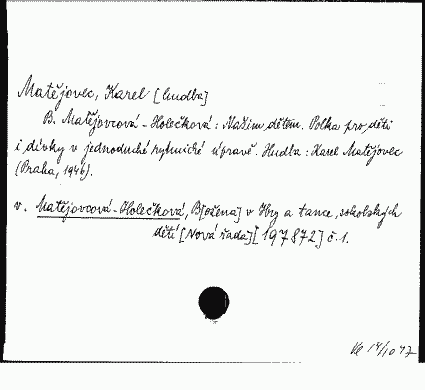 Matějovec, Karel [hudba]
B. Matějovcová-Holečková: Našim dětem. Polka pro děti
i dívky v jednoduché rytmické úpravě. Hudba: Karel Matějovec
(Praha, 1946).
v. Matějovcová-Holečková, B[ožena] v Hry a tance sokolských
dětí [Nová řada] [197872] č. 1.
14/10 47